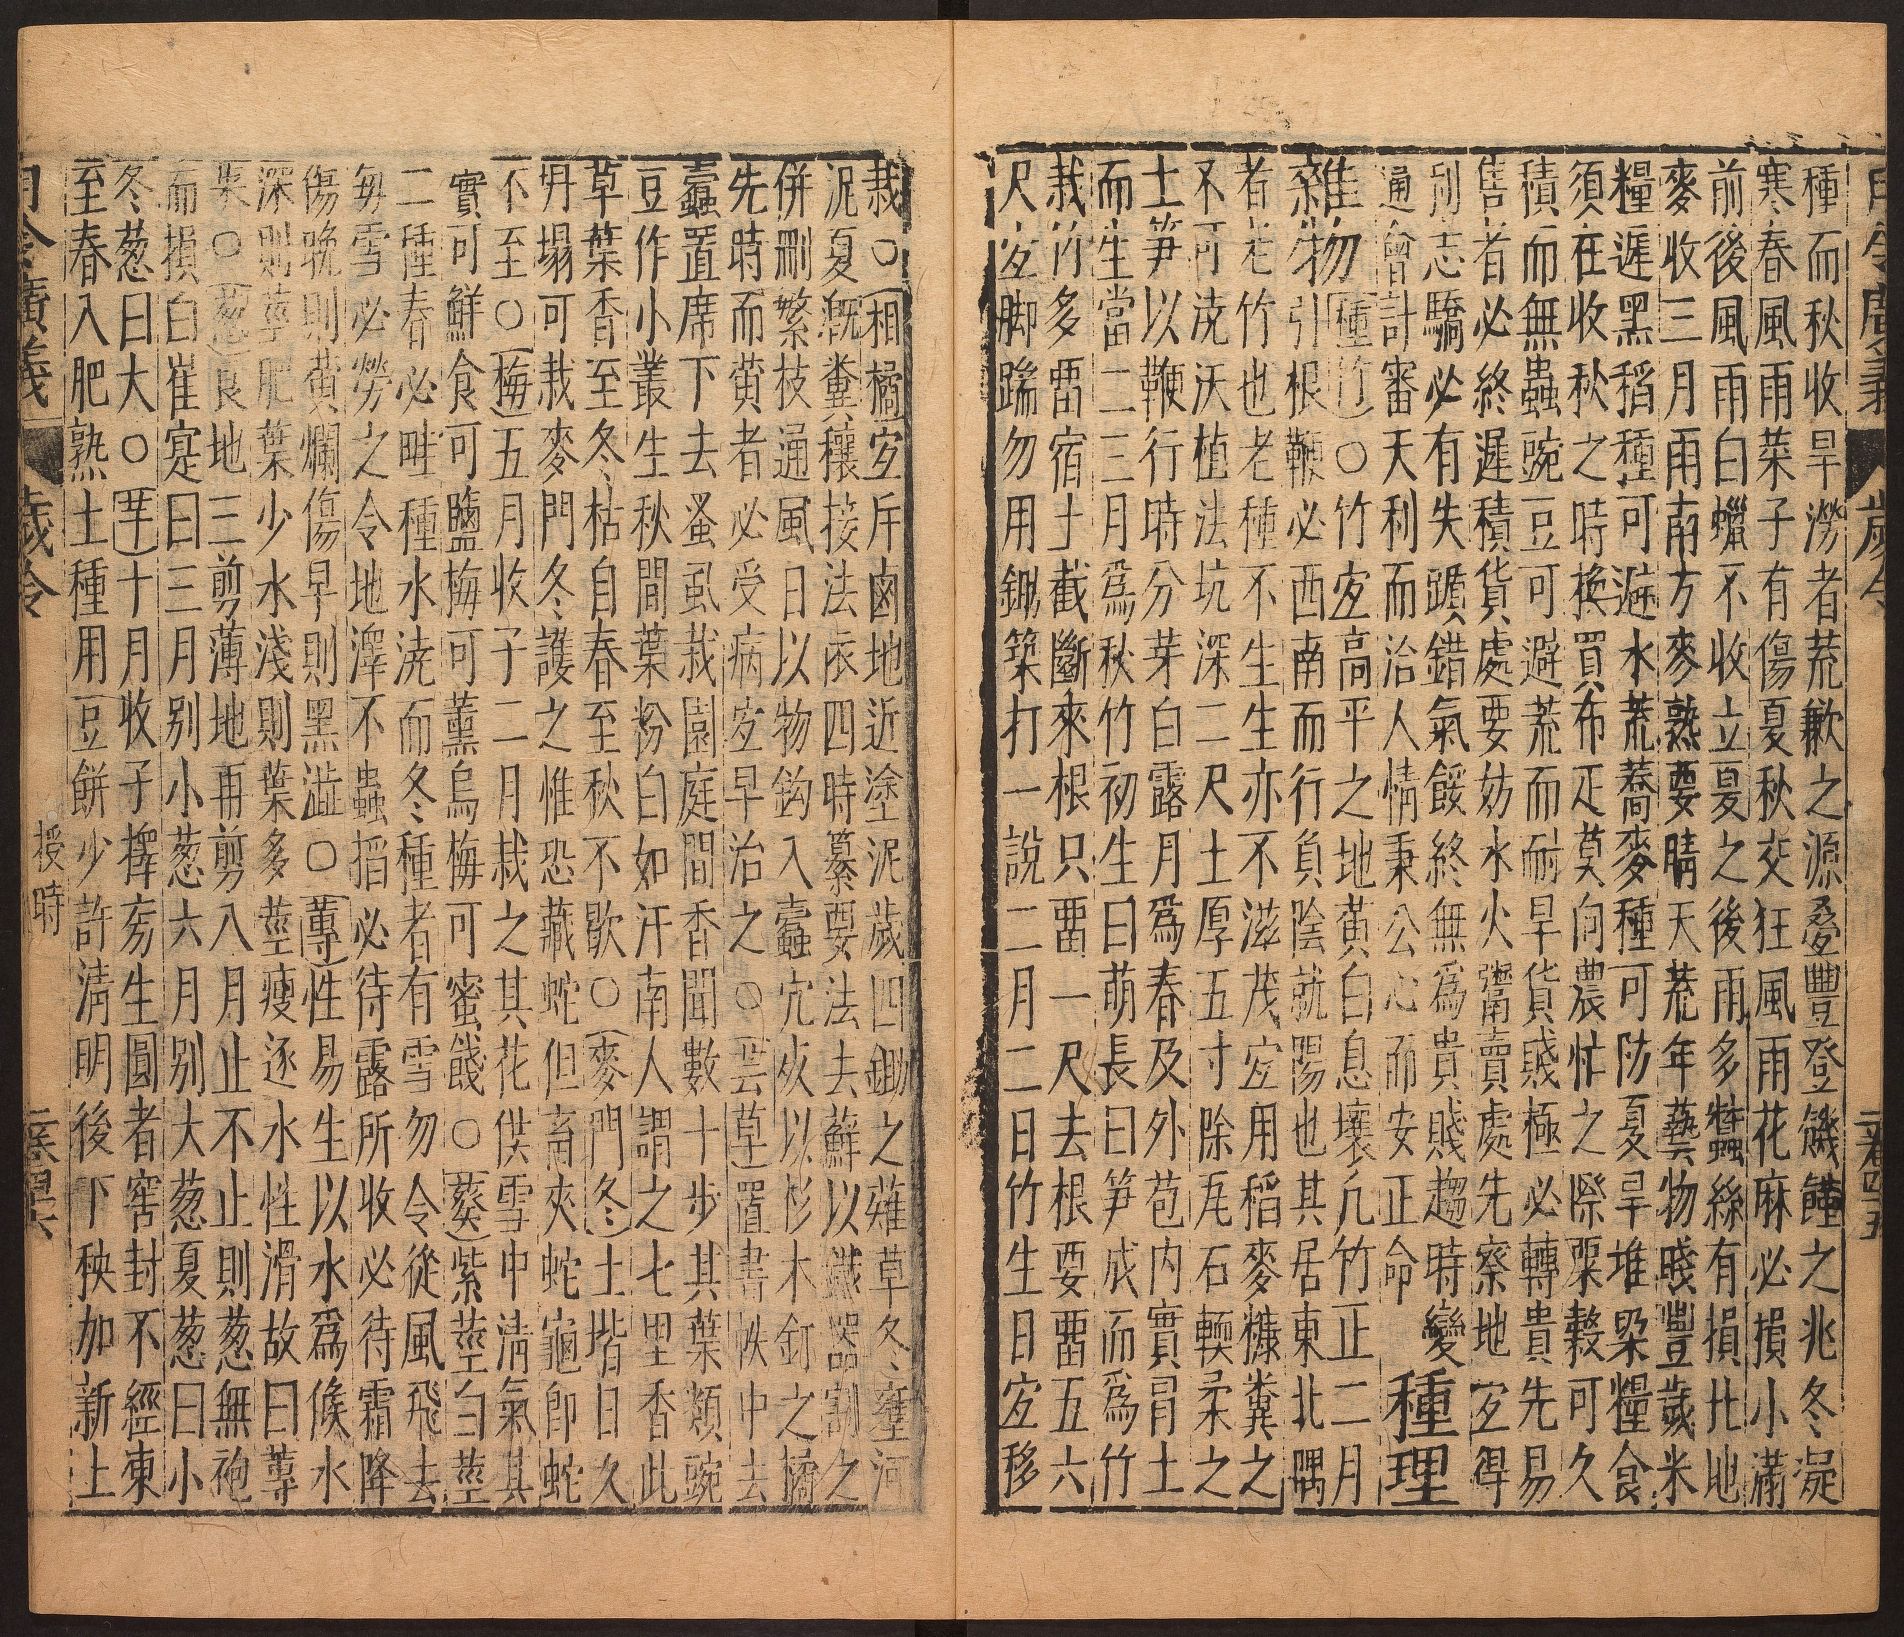 月令廣義 歲令 一卷四五
種而秋收旱澇者荒歉之源叠豐登饑饉之兆冬凝
寒春風雨菜子有傷夏秋交狂風雨花麻必損小滿
前後風雨白蠟不收立夏之後雨多蠶絲有損北地
麥收三月雨南方麥熟要晴天荒年藝物賤豐歲米
糧遲黑稻種可避水荒蕎麥種可防夏旱堆梁糧食
須在收秋之時換買布疋莫向農忙之際粟穀可久
積而無蟲豌豆可避荒而耐旱貨賤極必轉貴先易
售者必終遲積貨處要妨水火鬻賣處先察地宜得
則志驕必有失蹟錯氣餒終無爲貴賤趨時變
通會計審天利而洽人情秉公心而安正命 種理
雜物〔種竹〕○竹宜高平之地黃白息壤凢竹正二月
雜物引根鞭必西南而行負陰就陽也其居東北隅
者老竹也老種不生生亦不滋茂宜用稻麥糠糞之
不可澆沃植法坑深二尺土厚五寸除瓦石輭柔之
土笋以鞭行時分芽白露月爲春及外苞内實冐土
而生當二三月爲秋竹初生曰萌長曰笋成而爲竹
栽竹多畱宿土截斷來根只畱一尺去根要畱五六
尺宜脚踹勿用鋤築打一說二月二日竹生日宜移
栽○〔相橘〕宜斥鹵地近塗泥歲四鋤之薙草冬壅河
泥夏漑糞穰接法依四時纂要法去蘚以鐵器刮之
併刪繁枝通風日以物鈎入蠹穴夾以杉木釘之橘
先時而黃者必受病宜早治之○〔芸草〕置書帙中去
蠹置席下去蚤虱栽園庭間香聞數十步其葉類豌
豆作小叢生秋間葉粉白如汗南人謂之七里香此
草葉香至冬枯自春至秋不歇○〔麥門冬〕土堦日久
坍塌可栽麥門冬護之惟恐藏蛇但畜夾蛇龜卽蛇
不至○〔梅〕五月收子二月栽之其花供雪中淸氣其
實可鮮食可鹽梅可薰烏梅可蜜餞○〔葵〕紫莖白莖
二種春必畦種水澆而冬種者有雪勿令從風飛去
每雪必勞之令地澤不蟲搯必待露所收必待霜降
傷晚則黃爛傷早則黑澁○〔蓴〕性易生以水爲候水
深則莖肥葉少水淺則葉多莖瘦逐水性滑故曰蓴
菜○〔葱〕良地三剪薄地再剪八月止不止則葱無袍
而損白崔寔曰三月别小葱六月别大葱夏葱曰小
冬葱曰大○〔芋〕十月收子擇旁生圓者窖封不經凍
至春入肥熟土種用豆餅少許淸明後下秧加新土
月令廣義 歲令 授時 一卷四六